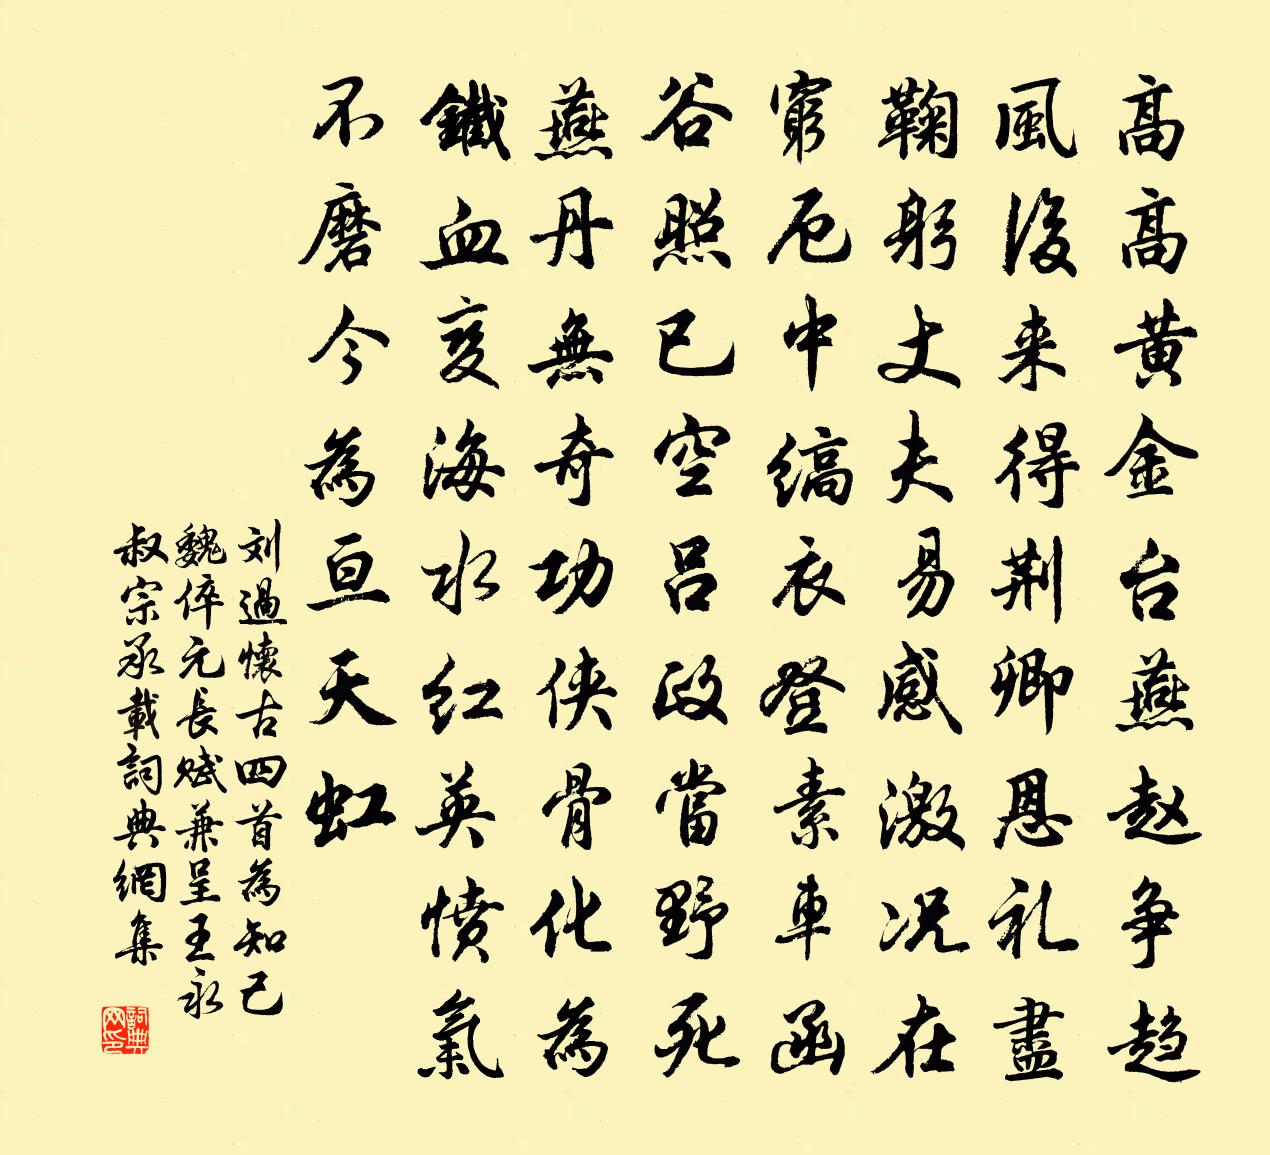 高高黄金台燕赵争趋
風後来得荆卿恩礼盡
鞠躬丈夫易感激况在
窮厄中縞衣登素車函
谷照已空吕政當野死
燕丹無奇功侠骨化為
鐵血变海水红英憤氣
不磨今為亘天虹
刘過懷古四首為知己
魏倅元長赋兼呈王永
叔宗丞載詞典網集
詞典网印